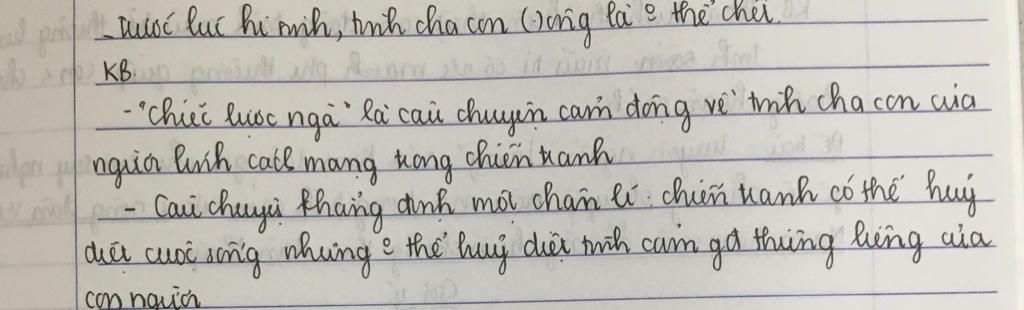 - Trước lúc hi sinh, tình cha con () ông là o thể chết
KB
- "Chiếc lược ngà" là câu chuyện cảm động về tình cha con của
người lính cách mạng trong chiến tranh
- Câu chuyện khẳng định một chân lí: chiến tranh có thể huỷ
diệt cuộc sống nhưng o thể huỷ diệt tình cảm gđ thiêng liêng của
con người